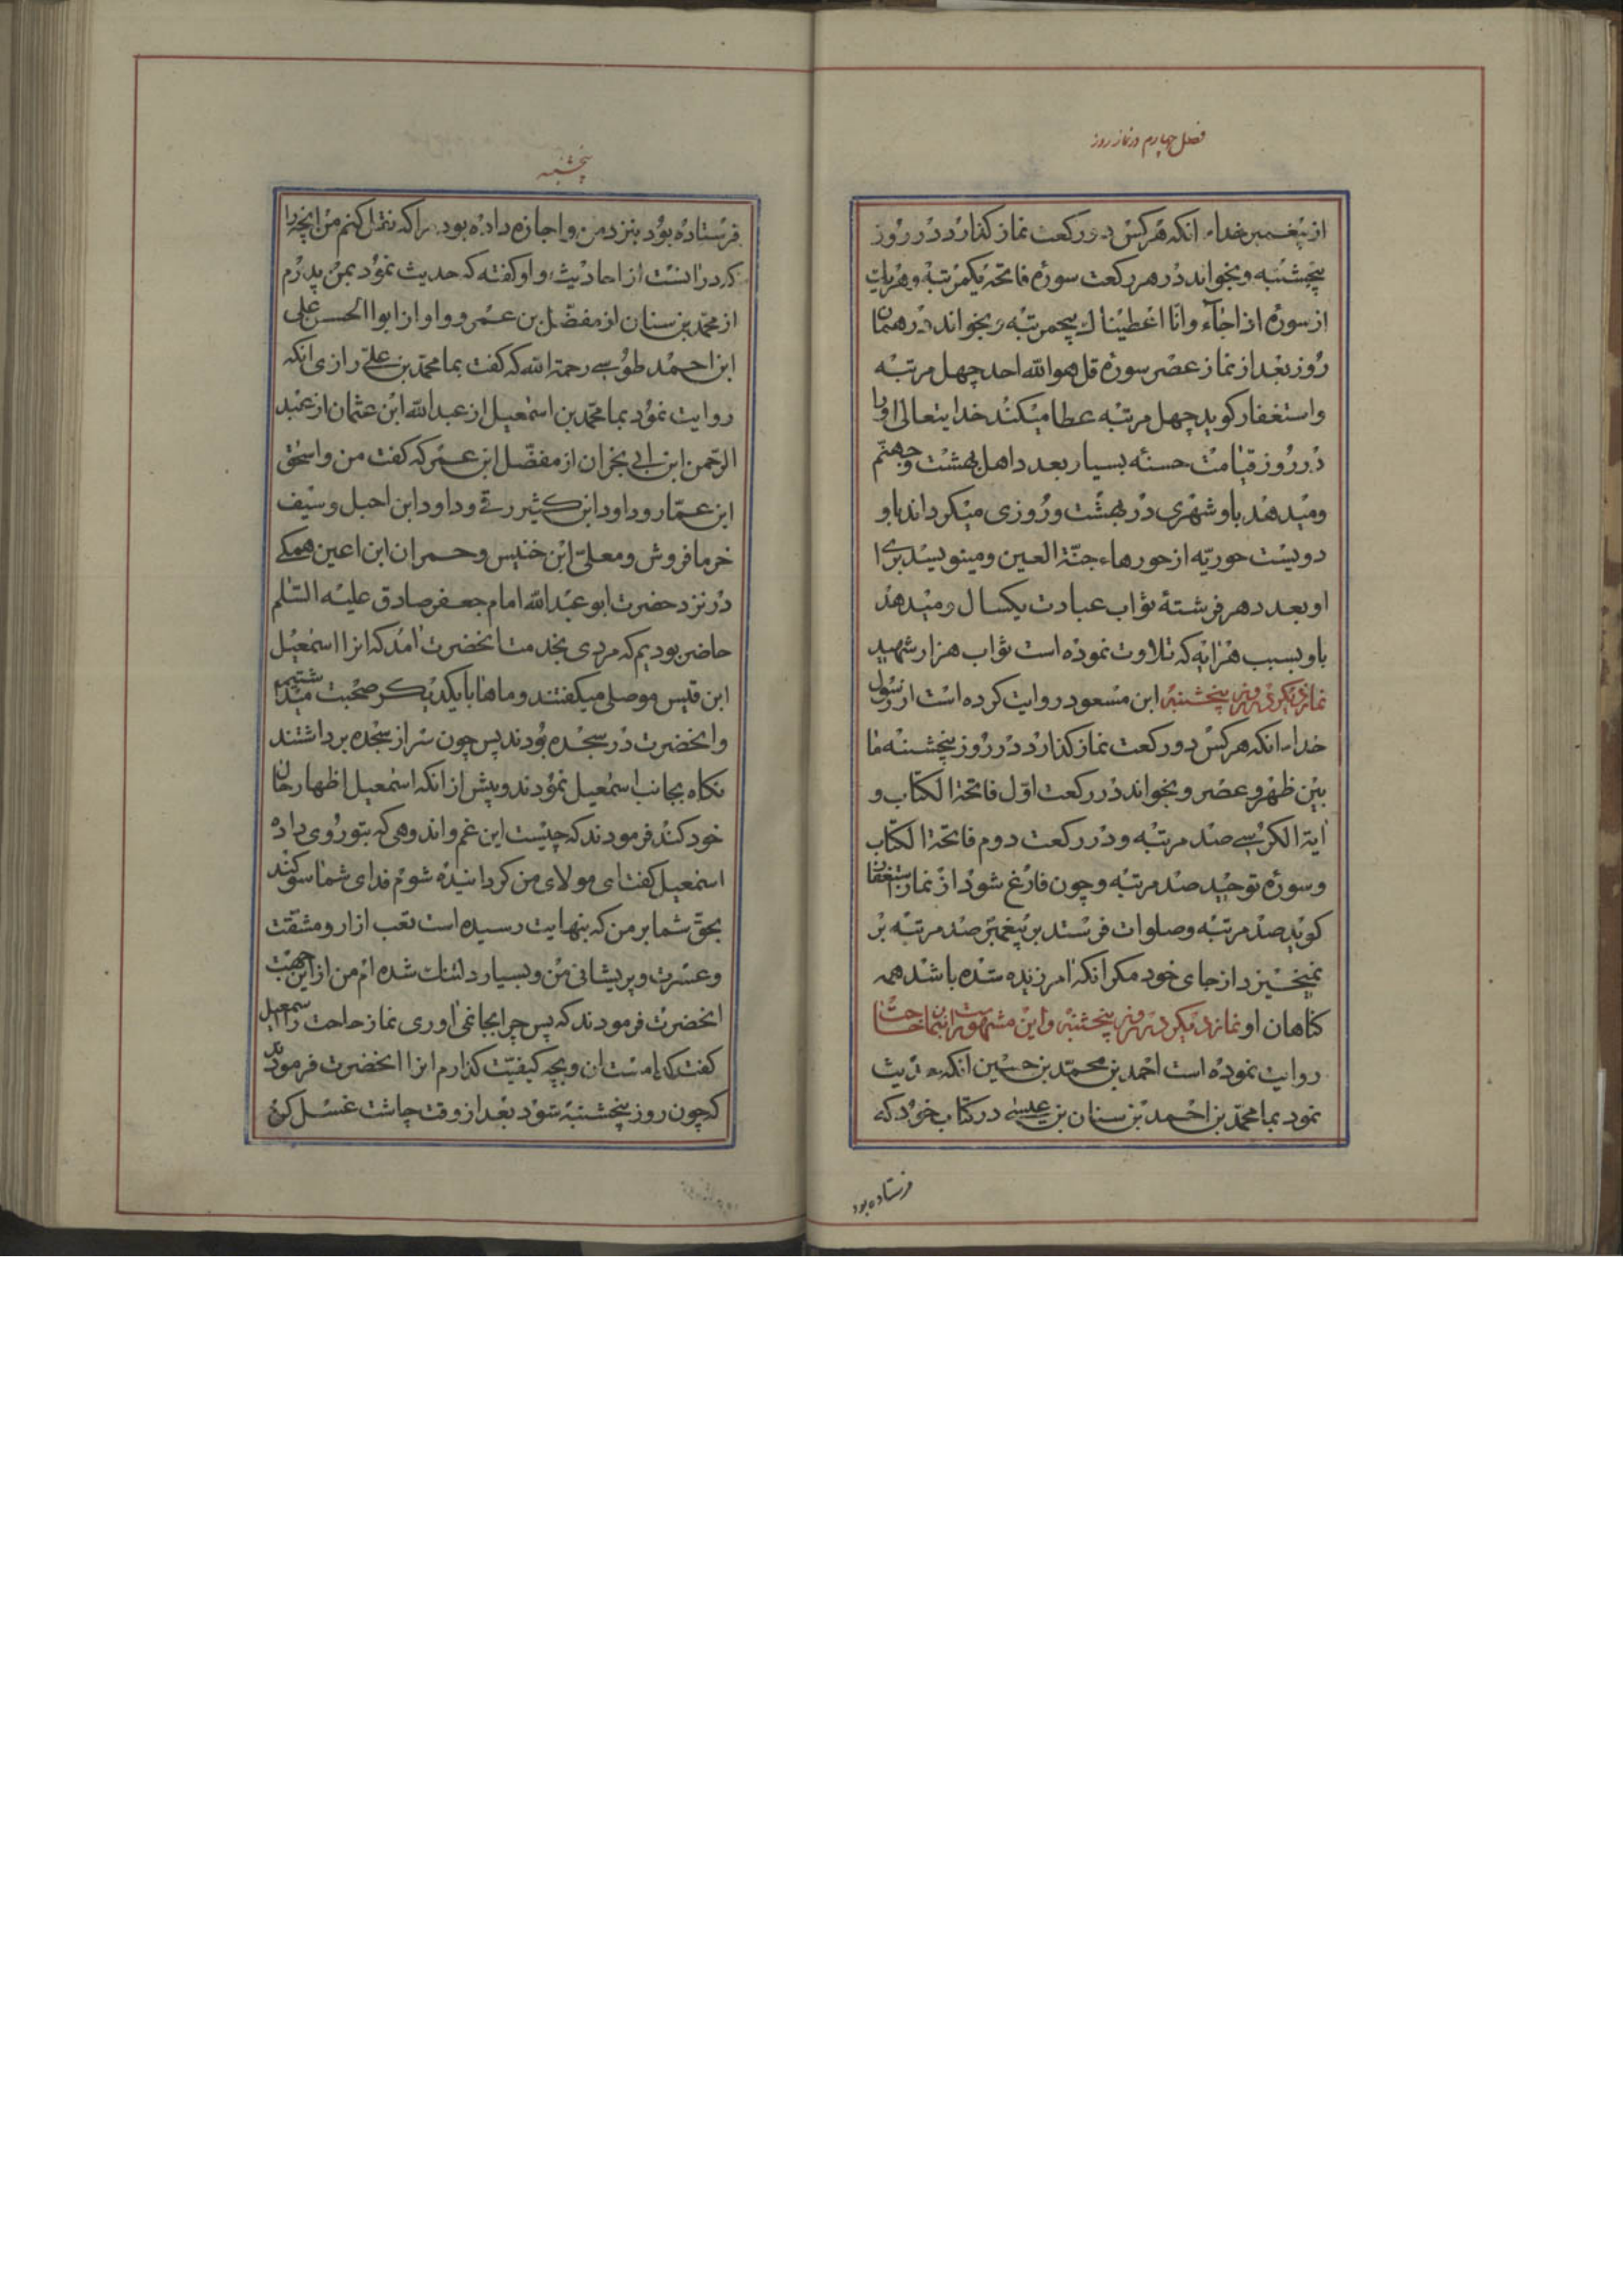 فصل چهارم در نماز روز
از پیغمبر خدا انکه هر کس دو رکعت نماز کذارد در روز
پنجشنبه و بخواند در هر رکعت سوره فاتحه یکمرتبه و هر یک
از سوره اذا جآء و انّا اعطیناک پنجمرتبه و بخواند در همان
روز بعد از نماز عصر سوره قل هو الله احد چهل مرتبه
و استغفار کوید چهل مرتبه عطا میکند خدایتعالی او را
در روز قیامت حسنه بسیار بعدد اهل بهشت و جهنّم
و میدهد باو شهری در بهشت و روزی میکرداند باو
دویست حوریّه از حورهاء جنّة العین و مینویسد برای
او بعدد هر فرشتهٔ ثواب عبادت یکسال و میدهد
باو بسبب هر ایه که تلاوت نموده است ثواب هزار شهید
نماز دیکر در روز پنجشنبه ابن مسعود روایت کرده است از رسول
خدا انکه هر کس دو رکعت نماز کذارد در روز پنجشنبه ما
بین ظهر و عصر و بخواند در رکعت اوّل فاتحة الکتاب و
ایة الکرسی صد مرتبه و در رکعت دوم فاتحة الکتاب
و سوره توحید صد مرتبه و چون فارغ شود از نماز استغفار
کوید صد مرتبه و صلوات فرستد بر پیغمبر صد مرتبه بر
نمیخیزد از جای خود مکر انکه امرزیده شده باشد همه
کناهان او نماز دیکر در روز پنجشنبه و این مشهور است بنماز حاجت
روایت نموده است احمد بن محمّد بن حسین انکه حدیث
نمود بما محمّد بن احمد بن سنان بن عیسی در کتاب خود که
فرستاده بود
پنجشنبه
فرستاده بود بنزد من و اجازه داده بود مرا که نقل کنم من انچه را
که در انست از احادیث و او کفته که حدیث نمود بمن پدرم
از محمّد بن سنان از مفضّل بن عمر و او از ابوا الحسن علی
ابن احمد طوسی رحمة الله که کفت بما محمّد بن علی رازی انکه
روایت نمود بما محمّد بن اسمعیل از عبد الله ابن عثمان از عبد
الرّحمن ابن ابی نجران از مفضّل ابن عمر که کفت من و اسحق
ابن عمّار و داود ابن کثیر رقی و داود ابن احیل و سیف
خرما فروش و معلّی ابن خنیس و حمران ابن اعین همکی
در نزد حضرت ابو عبد الله امام جعفر صادق علیه السّلم
حاضر بودیم که مردی بخدمت انحضرت امد که انرا اسمعیل
ابن قیس موصلی میکفتند و ماها با یکدیکر صحبت میداشتیم
و انحضرت در سجده بودند پس چون سر از سجده برداشتند
نکاه بجانب اسمعیل نمودند و پیش از انکه اسمعیل اظهار حال
خود کند فرمودند که چیست این غم و اندوهی که بتو روی داده
اسمعیل کفت ای مولای من کردانیده شوم فدای شما سوکند
بحقّ شما بر من که بنهایت رسیده است تعب ازار و مشقّت
و عسرت و پریشانی من و بسیار دلتنک شده ام من از این جهت
انحضرت فرمودند که پس چرا بجا نمی اوری نماز حاجت را اسمعیل
کفت که کدامست ان و بچه کیفیّت کذارم انرا انحضرت فرمودند
که چون روز پنجشنبه شود بعد از وقت چاشت غسل کن